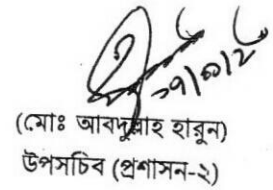 (মোঃ আবদুল্লাহ হারুন)
উপসচিব (প্রশাসন-২)